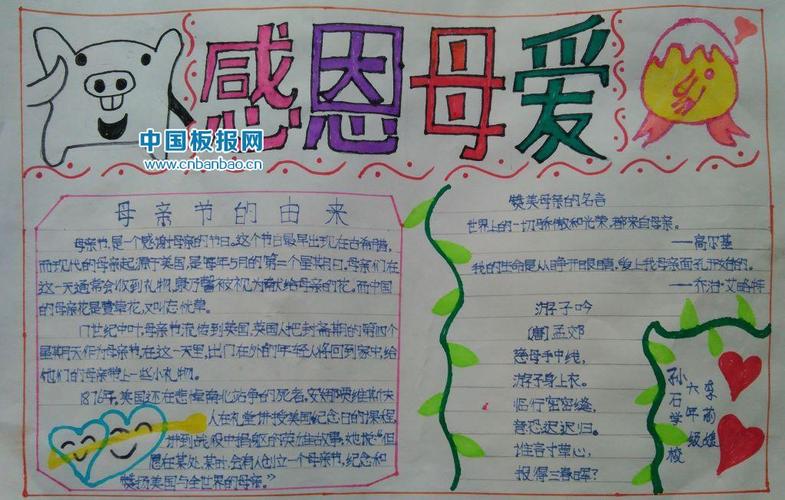 感恩母爱
中国板报网
www.cnbanbao.cn
母亲节的由来
母亲节,是一个感谢母亲的节日。这个节日最早出现在古希腊,
而现代的母亲起源于美国,是每年5月的第二个星期日。母亲们在
这一天通常会收到礼物,康乃馨被视为献给母亲的花。而中国
的母亲花是萱草花,又叫忘忧草。
17世纪中叶,母亲节流传到英国,英国人把封斋期的第四个
星期天作为母亲节。在这一天里,出门在外的年轻人将回到家中,给
他们的母亲带上一些小礼物。
1876年,美国还在悲悼南北战争的死者,安娜·贾维斯夫
人在礼堂讲授美国纪念日的课程,
讲到战役中捐躯的英雄故事,她说“但
愿在某处,某时,会有人创立一个母亲节,纪念和
赞扬美国与全世界的母亲。”
赞美母亲的名言
世界上的一切骄傲和光荣,都来自母亲。
——高尔基
我的生命是从睁开眼睛,爱上我母亲面孔开始的。
——乔治·艾略特
游子吟
(唐)孟郊
慈母手中线,
游子身上衣。
临行密密缝,
意恐迟迟归。
谁言寸草心,
报得三春晖?
孙石学校
六年级
李